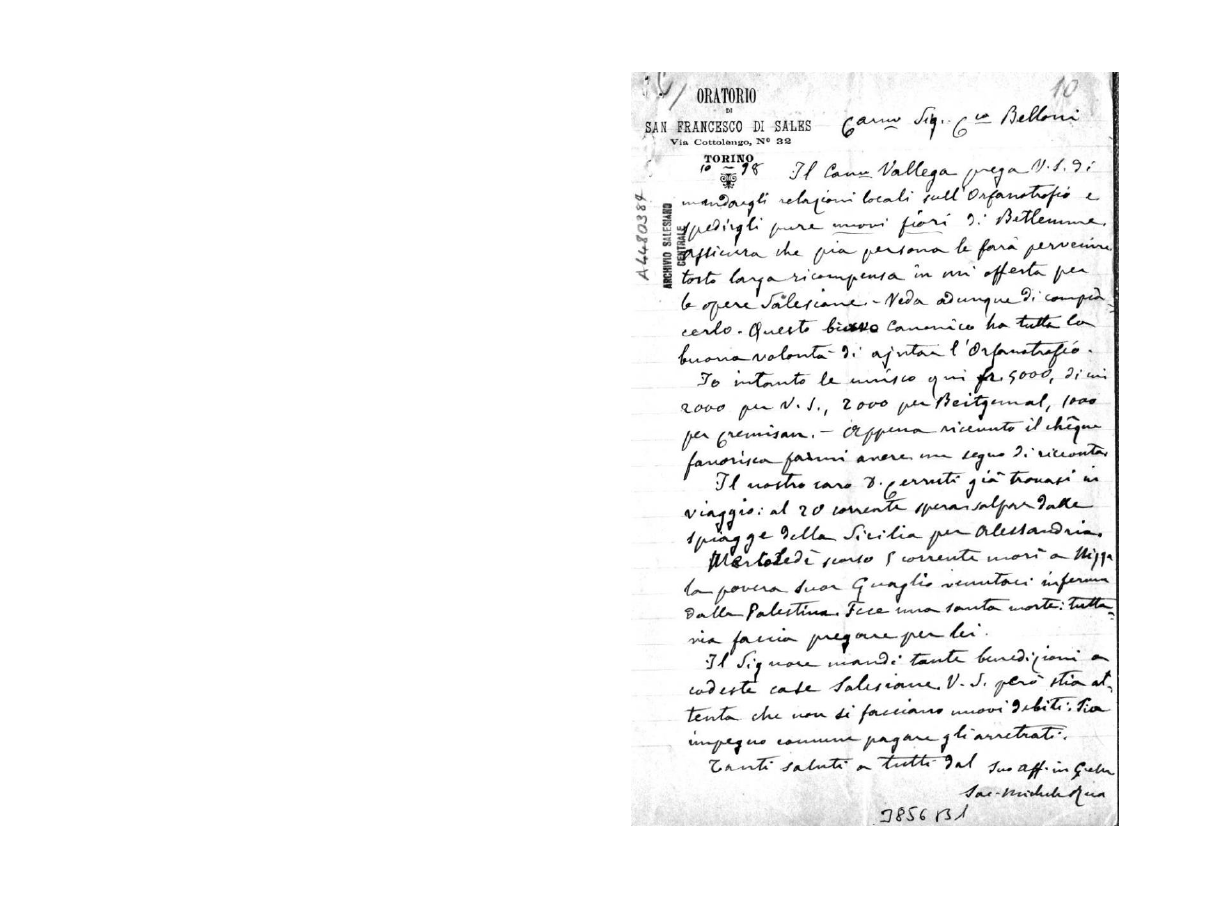 10
ORATORIO
DI
SAN FRANCESCO DI SALES
Via Cottolengo, Nº 32
TORINO
10 — 98
A4480384
ARCHIVIO SALESIANO
CENTRALE
Carmo Sig. Cco Belloni
Il Canco Vallega prega V. S. di
mandargli relazioni locali sull'Orfanotrofio e
spedirgli pure nuovi fiori di Betlemme.
Assicura che pia persona le farà pervenire
tosto larga ricompensa in un' offerta per
le opere Salesiane. - Veda adunque di compia-
cerlo. Questo Canonico ha tutta la
buona volontà di ajutar l'Orfanotrofio.
Io intanto le unisco qui fr. 5000, di cui
2000 per V. S., 2000 per Beitgemal, 1000
per Cremisan. - Appena ricevuto il chèque
favorisca farmi avere un segno di ricevuta.
Il nostro caro D. Cerruti già trovasi in
viaggio: al 20 corrente spera salpar dalle
spiagge della Sicilia per Alessandria.
Martedì scorso 5 corrente morì a Nizza
la povera Suor Quaglio venutaci inferma
dalla Palestina. Fece una santa morte: tutta-
via faccia pregare per lei.
Il Signore mandi tante benedizioni a
codeste case Salesiane. V. S. però stia at-
tenta che non si facciano nuovi debiti. Sia
impegno comune pagare gli arretrati.
Tanti saluti a tutti dal Suo aff. in G. e M.
Sac. Michele Rua
3856 B1